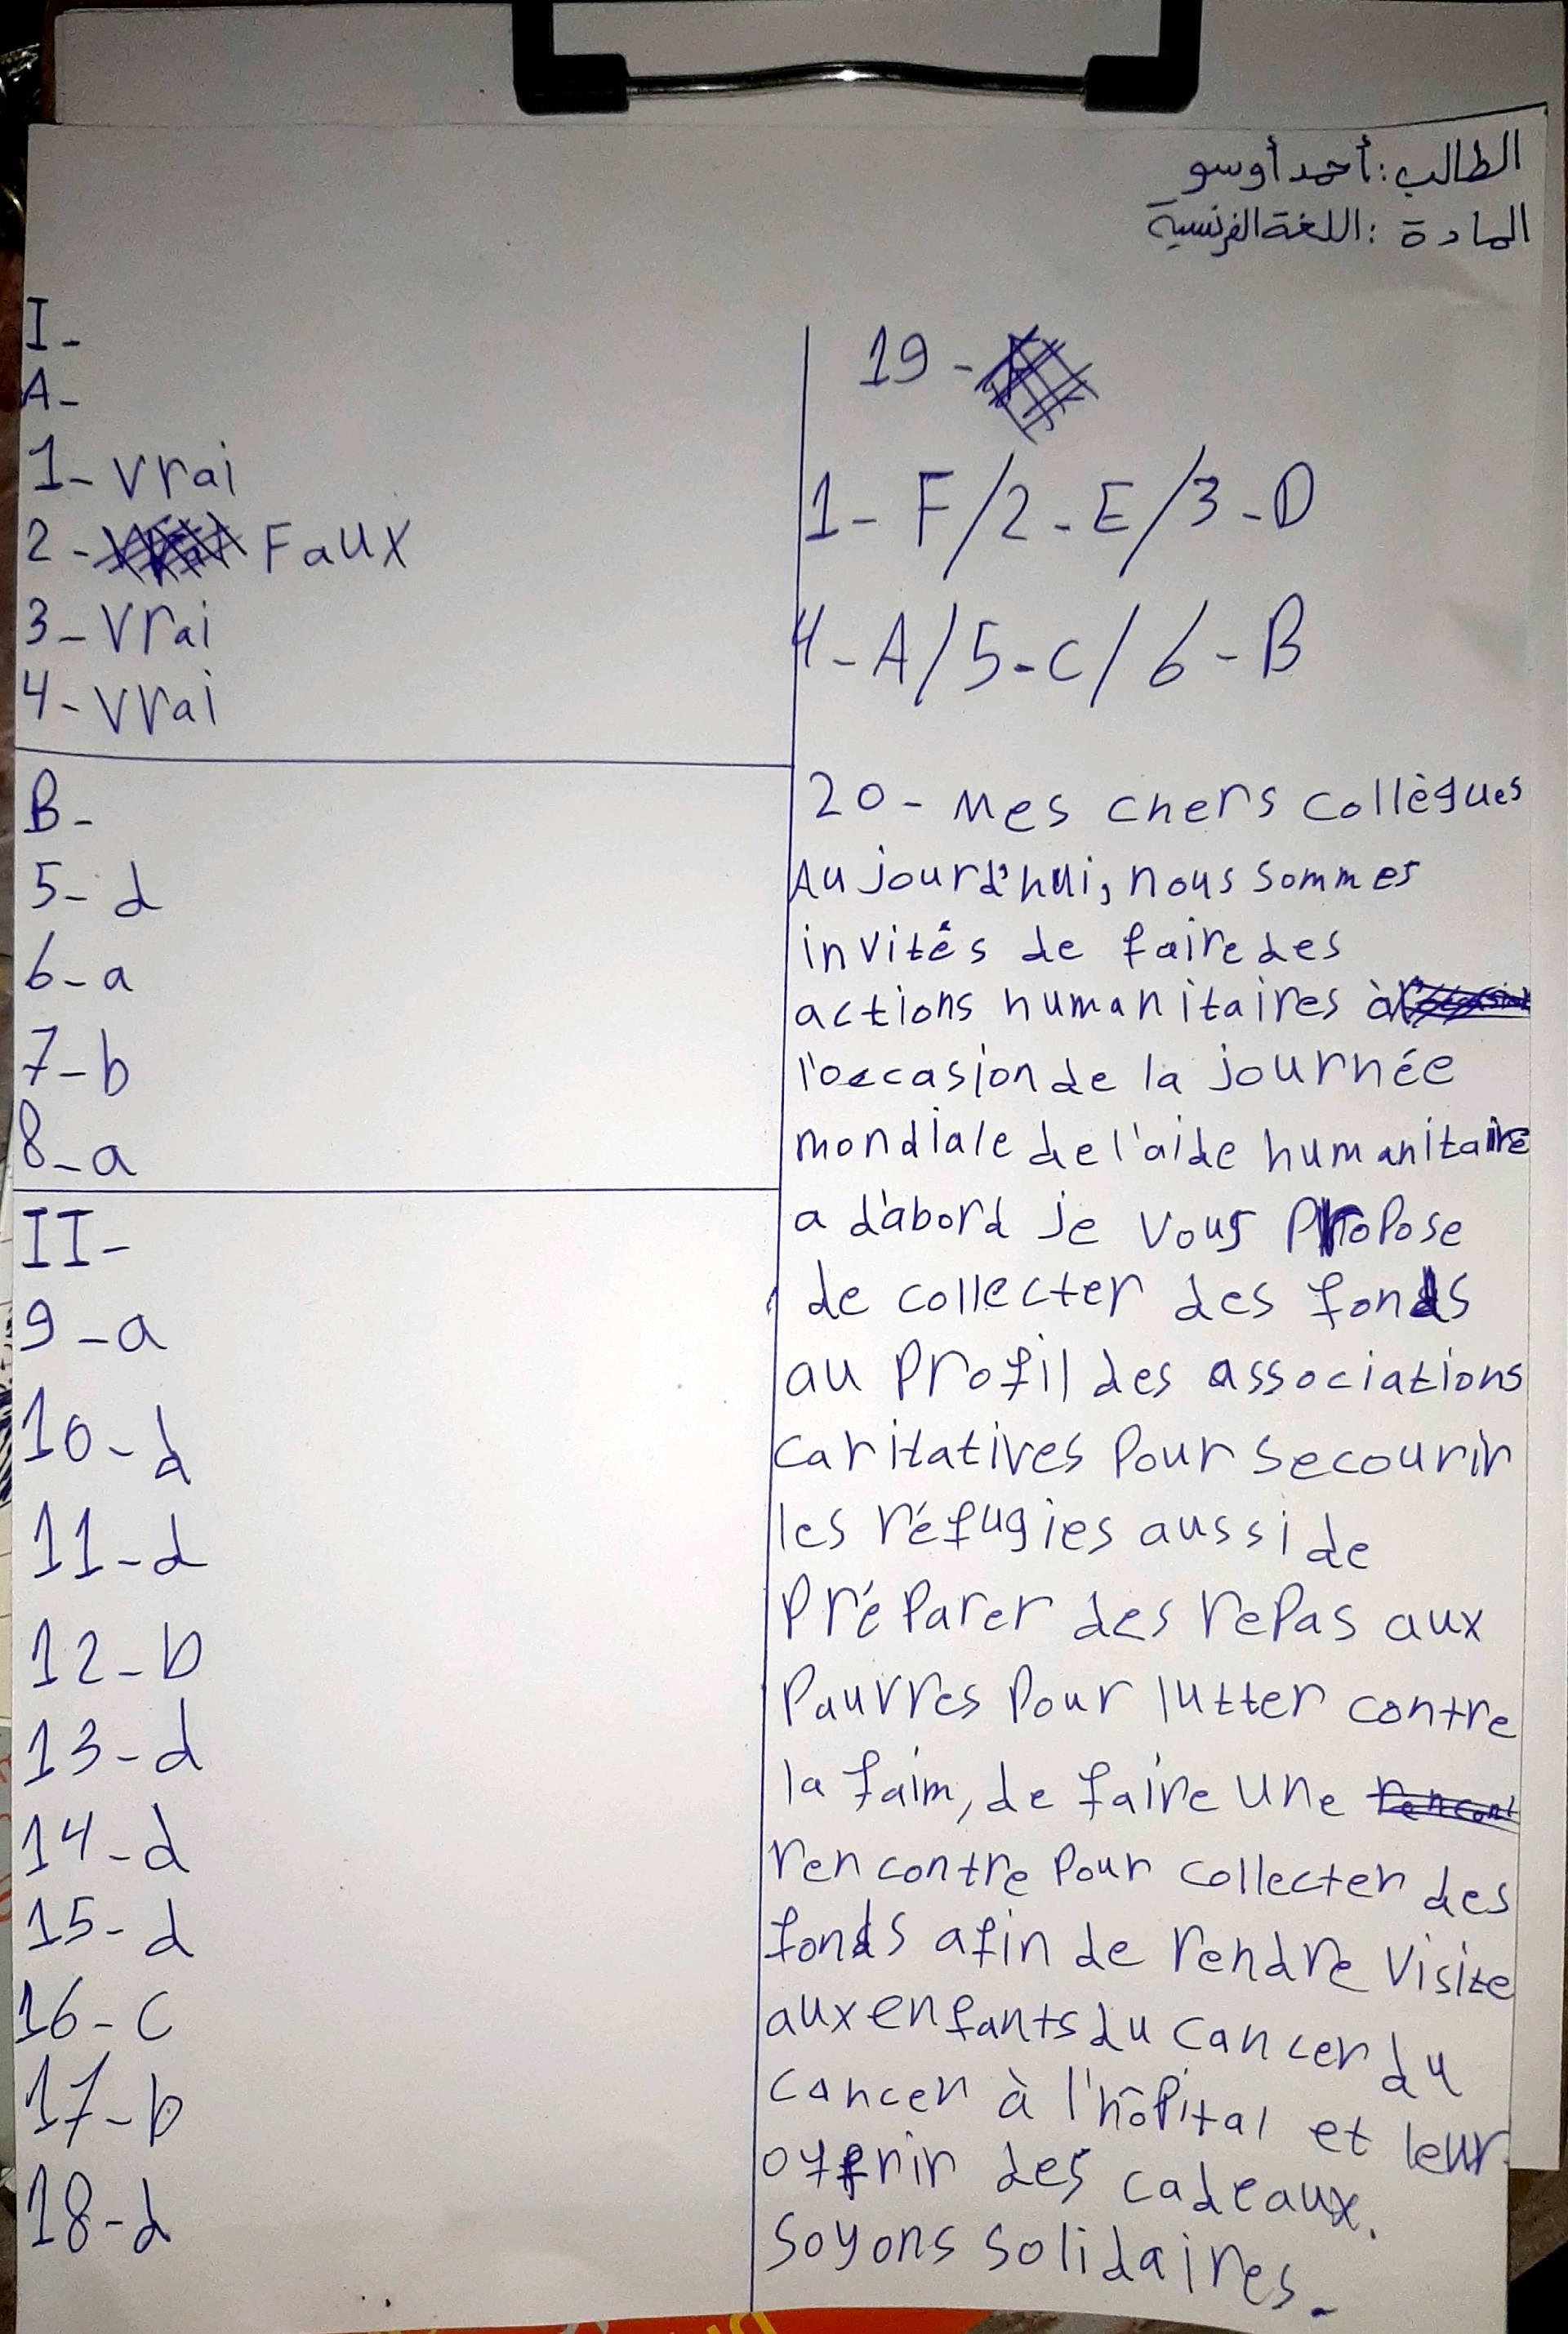 الطالب: أحمد أوسو
المادة: اللغة الفرنسية
I-
A-
1- vrai
2- Faux
3- vrai
4- vrai
B-
5- d
6- a
7- b
8- a
II-
9- a
10- d
11- d
12- b
13- d
14- d
15- d
16- c
17- b
18- d
19-
1- F/2- E/3- D
4- A/5- C/6- B
20- Mes chers collègues
Aujourd'hui, nous sommes
invités de faire des
actions humanitaires à
l'occasion de la journée
mondiale de l'aide humanitaire
a d'abord je vous propose
de collecter des fonds
au profil des associations
caritatives pour secourir
les réfugies aussi de
préparer des repas aux
pauvres pour lutter contre
la faim, de faire une
rencontre pour collecter des
fonds afin de rendre visite
aux enfants du cancer du
cancer à l'hôpital et leur
offrir des cadeaux.
Soyons solidaires.